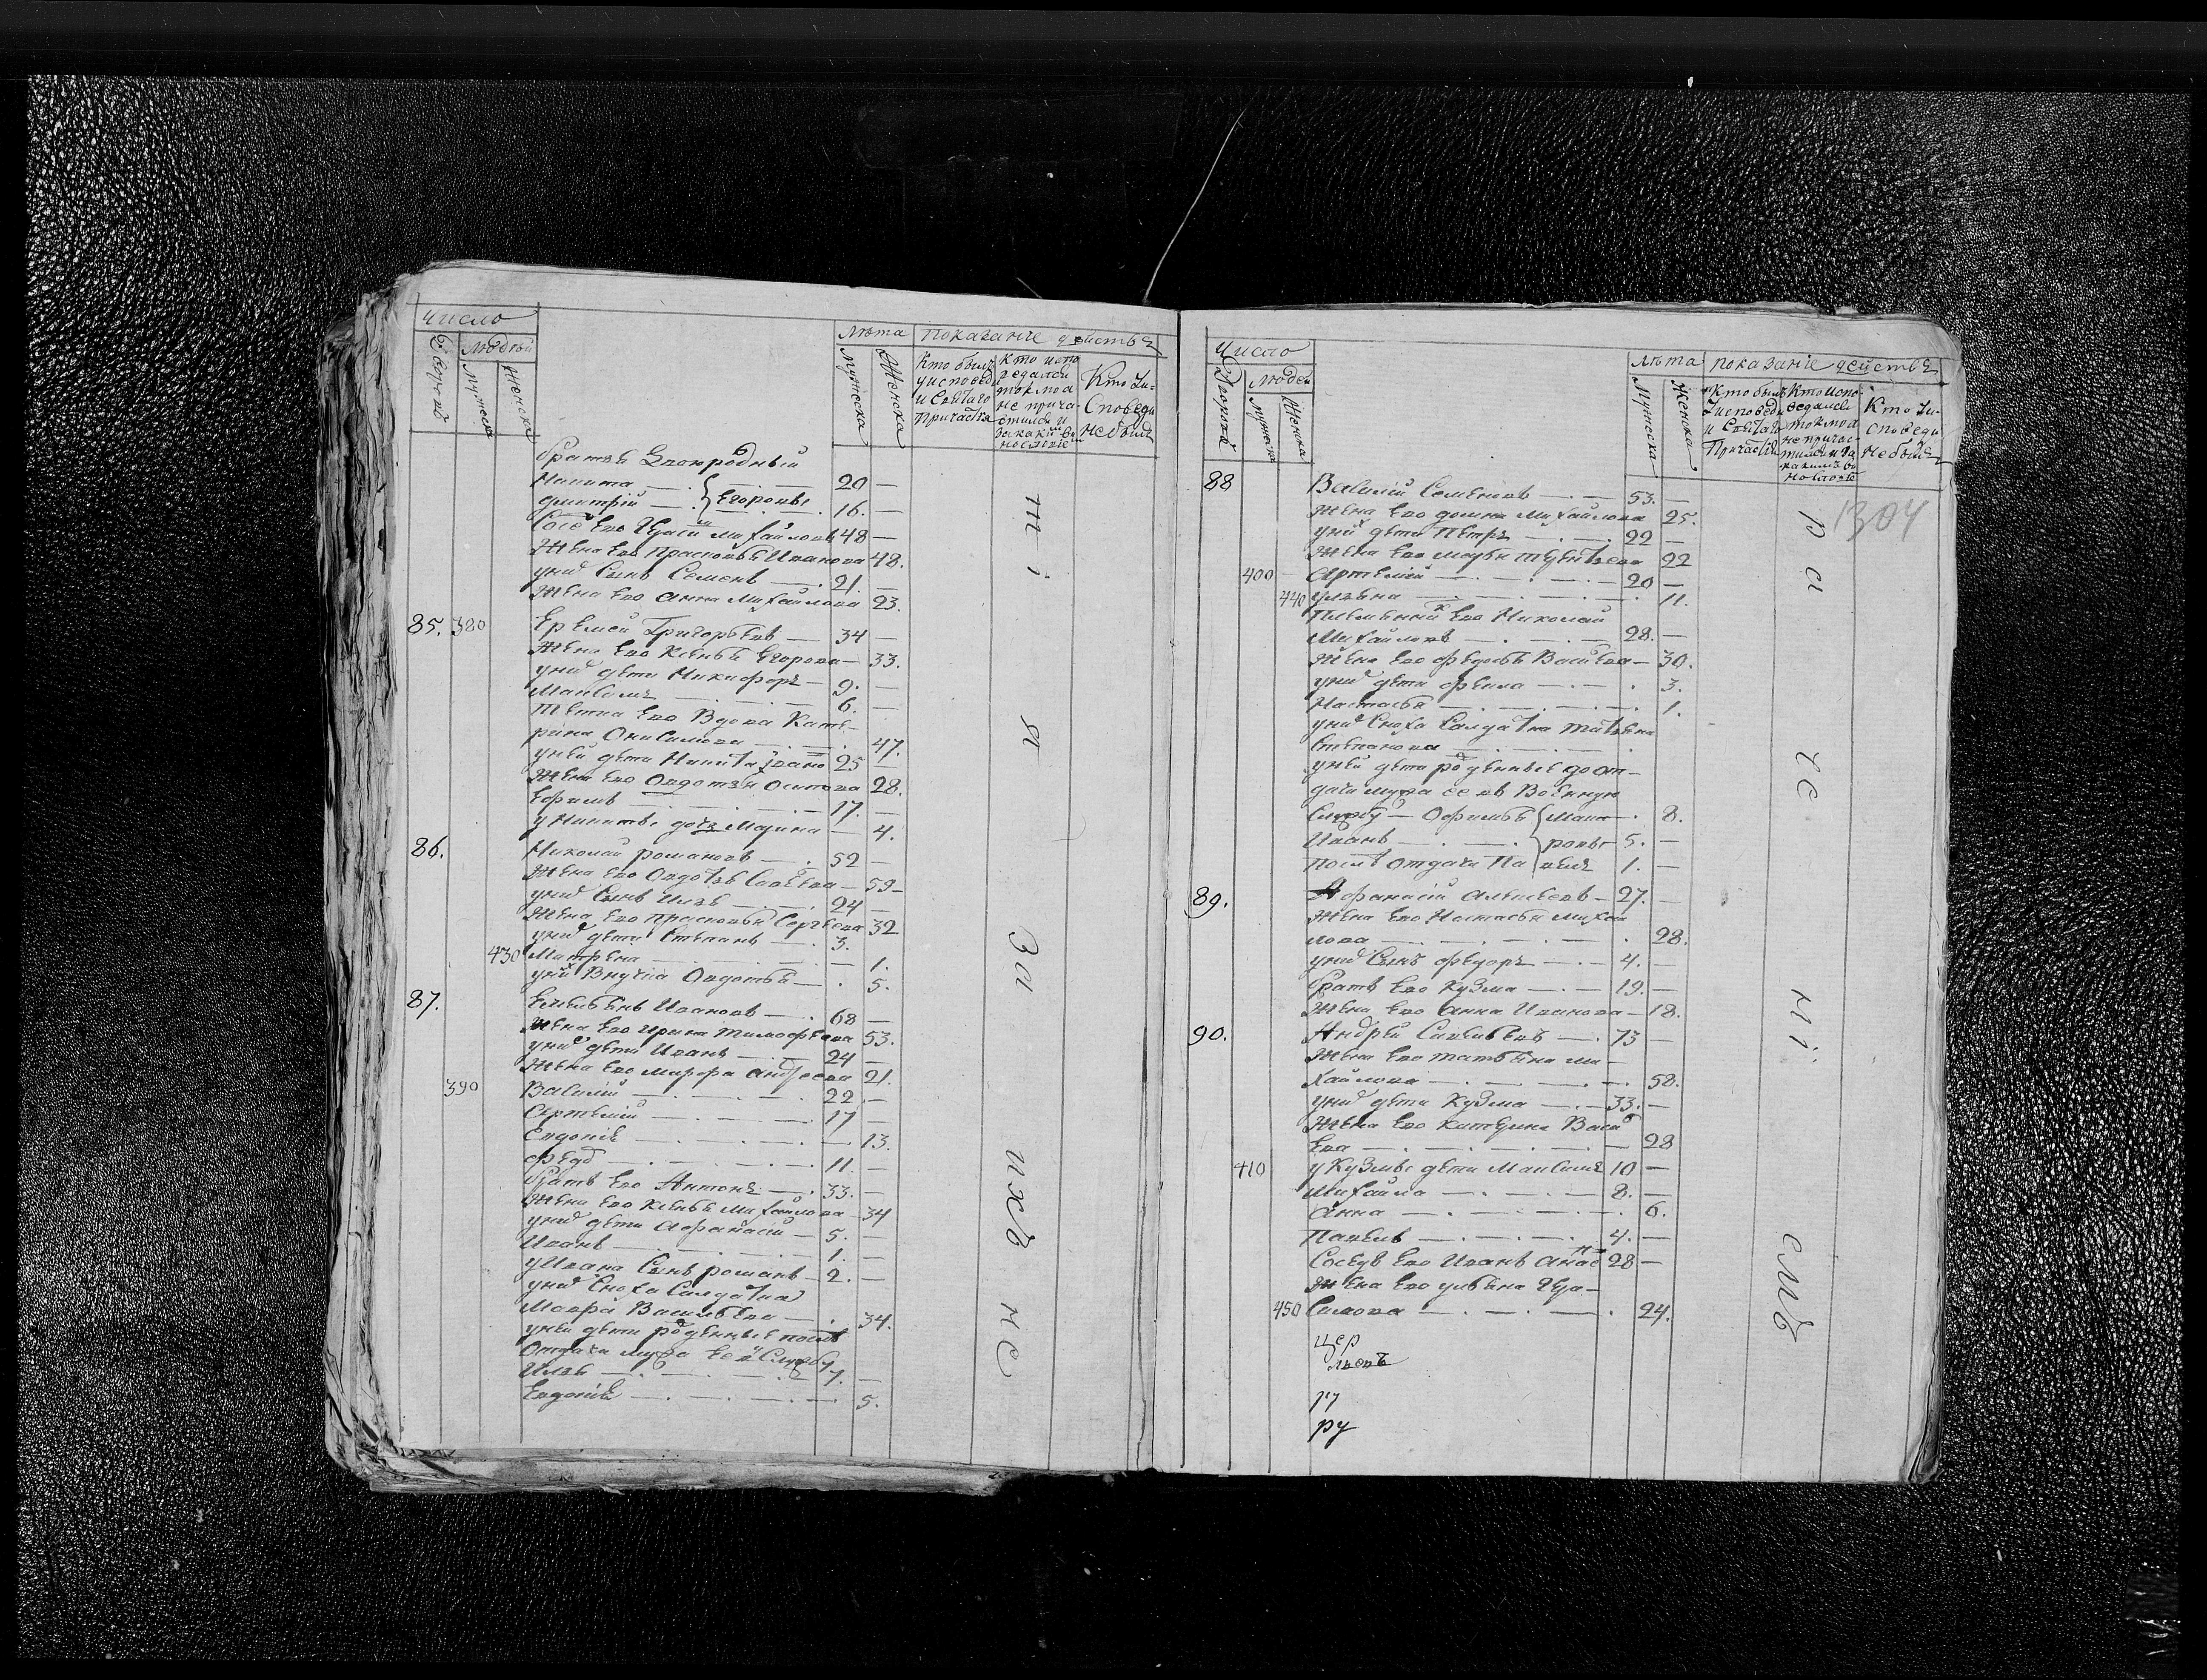 Число
Дворовъ
Людей
Мужеска
Женска
Лѣта
Мужеска
Женска
показание действъ
Кто былъ
у исповеди
и Святаго
Причастия
Кто испо
ведался
токмо а
не прича
стился и
за какимъ ви
нословіе
Кто Іи=
Споведи
не былъ
братья Двоюродныи
Никита — 20 —
Дмитрій — Егоровы 16. —
Сосе Его Герасим михайловъ 48 —
Жена Ево Прасковья Иванова 48.
у нихъ Сынъ Семенъ — 21. —
Жена Ево Анна Михайлова 23.
85. 380 Еремей Григорьевъ — 34 —
Жена Ево Ксенья Егорова — 33.
у нихъ дети Никифоръ — 9. —
Максимъ — 6. —
тетка Ево Вдова Кате-
рина Онисимова — 47.
у ней дети Никита Ивано 25 —
Жена Ево Овдотья Осипова 28.
Ефимъ — 17. —
у Никиты дочь Марина — 4.
86. Николай романовъ — 52 —
Жена Ево Овдотья Савева — 59 —
у нихъ Сынъ Илья — 24 —
Жена Ево прасковья Сергеева 32
у нихъ дети Степанъ — 3.
430 Матрена — 1.
у них Внучка Овдотья — 5.
87. Емельянъ Ивановъ — 68 —
Жена Ево Ирина тимофеева 53.
у нихъ дети Иванъ — 24 —
Жена Ево марфа андреева 21.
390 Василий — 22. —
Сартемий — 17 —
Евдокия — 13.
Федо — 11. —
Братъ Ево Антонъ — 33. —
Жена Ево Ксенья Михайлова 34
у нихъ дети Афанасий — 5. —
Иванъ — 1. —
у Ивана Сынъ романъ — 2. —
у нихъ Сноха Салдатка
Мавра Васильева — 34.
у ней дети рожденные после
Отдачи мужа ее в Службу
Илья — 7. —
Евдокия — 5.
ті
я
За
ихъ
не
Число
Дворовъ
Людей
Мужеска
Женска
Лѣта
Мужеска
Женска
показаніе действъ
Кто былъ
Іисповеди
и Святаго
Причастия
Кто испо-
ведался
токмо а
не причас-
тился и за
какимъ ви
нословіе
Кто Іи-
споведи
не былъ
1304
88 Василий Семеновъ — 53. —
Жена Ево домна Михайлова 25.
у них дети Петръ — 22 —
Жена Ево Марья терентьева 22
400 Артемий — 20 —
440 ульяна — 11.
Племянник Ево Николай
Михайловъ — 28. —
Жена Ево Федосья Васильева — 30.
у нихъ дети Фекла — 3.
Настасья — 1.
у нихъ Сноха Салдатка татьяна
Степанова —
у ней дети рожденные до от-
дачи мужа ее въ Военную
Службу — Офимья Макс — 8.
Иванъ — ровы 5. —
после отдачи Павелъ 1. —
89. Афанасій Алексеевъ — 27. —
Жена Ево Настасья Михай
лова — 28.
у нихъ Сынъ Федоръ — 4. —
Братъ Ево Кузма — 19. —
Жена Ево Анна Иванова — 18.
90. Андрей Савельевъ — 73 —
Жена Ево татьяна Ми-
хайлова — 58.
у нихъ дети Кузма — 33. —
Жена Ево Катерина Васи
Ева — 28
410 у Кузмы дети Максимъ 10 —
Михайла — 8. —
анна — 6.
Павелъ — 4. —
Соседъ Ево Иванъ 28 —
Жена Ево ульяна Гера-
450 Симова — 24.
цер
ру
ра
че
ні
сль